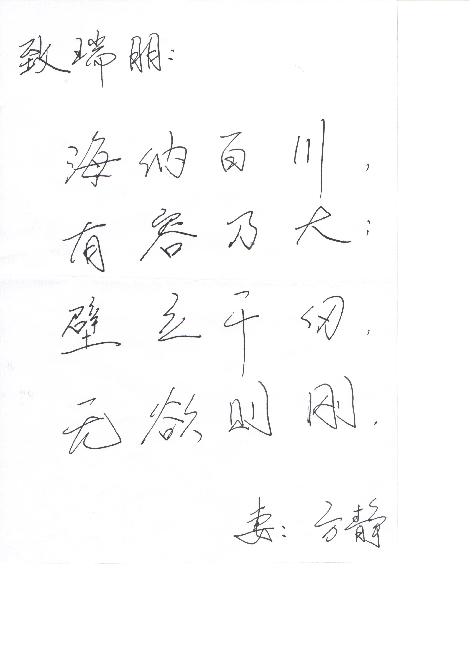 致瑞朋:
海纳百川,
有容乃大;
壁立千仞,
无欲则刚.
妻: 方静